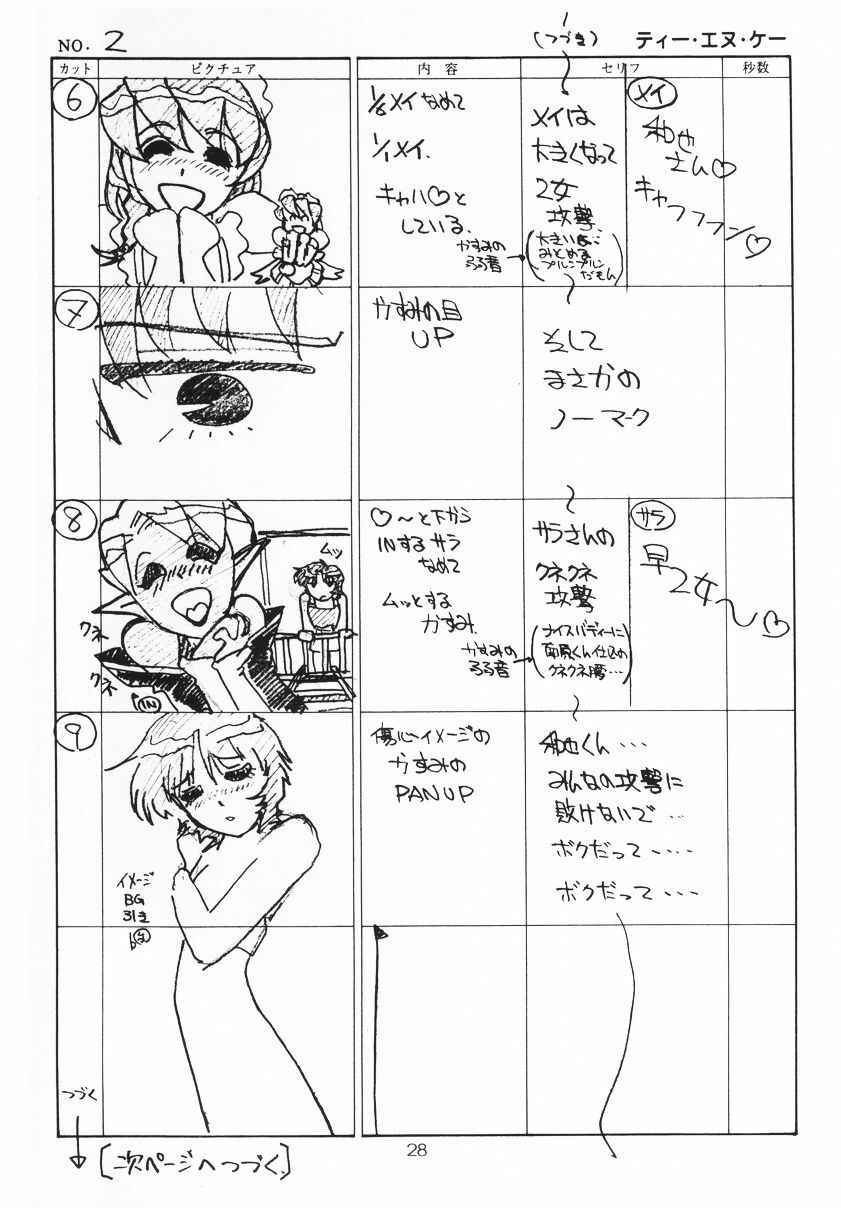 NO. 2
(つづき)
ティー・エヌ・ケー
カット
ピクチュア
内容
セリフ
秒数
6
1/8メイなめて
1/1メイ.
キャハ♡と
している.
かすみの
弱音
メイは
大きくなって
乙女
攻撃
(大きいは
みとめる
プルンプルン
だもん)
メイ
和也
さん♡
キャフフフン♡
7
かすみの目
UP
そして
まさかの
ノーマーク
8
ムッ
クネ
クネ
IN
♡〜と下から
INするサラ
なめて
ムッとする
かすみ.
かすみの
弱音
サラさんの
クネクネ
攻撃
(ナイスバディーに
南原くん仕込の
クネクネ腰…)
サラ
早乙女〜♡
9
イメージ
BG
引き
傷心イメージの
かすみの
PAN UP
和也くん・・・
みんなの攻撃に
敗けないで・・
ボクだって・・・・
ボクだって・・・
つづく
[次ページへつづく.]
28